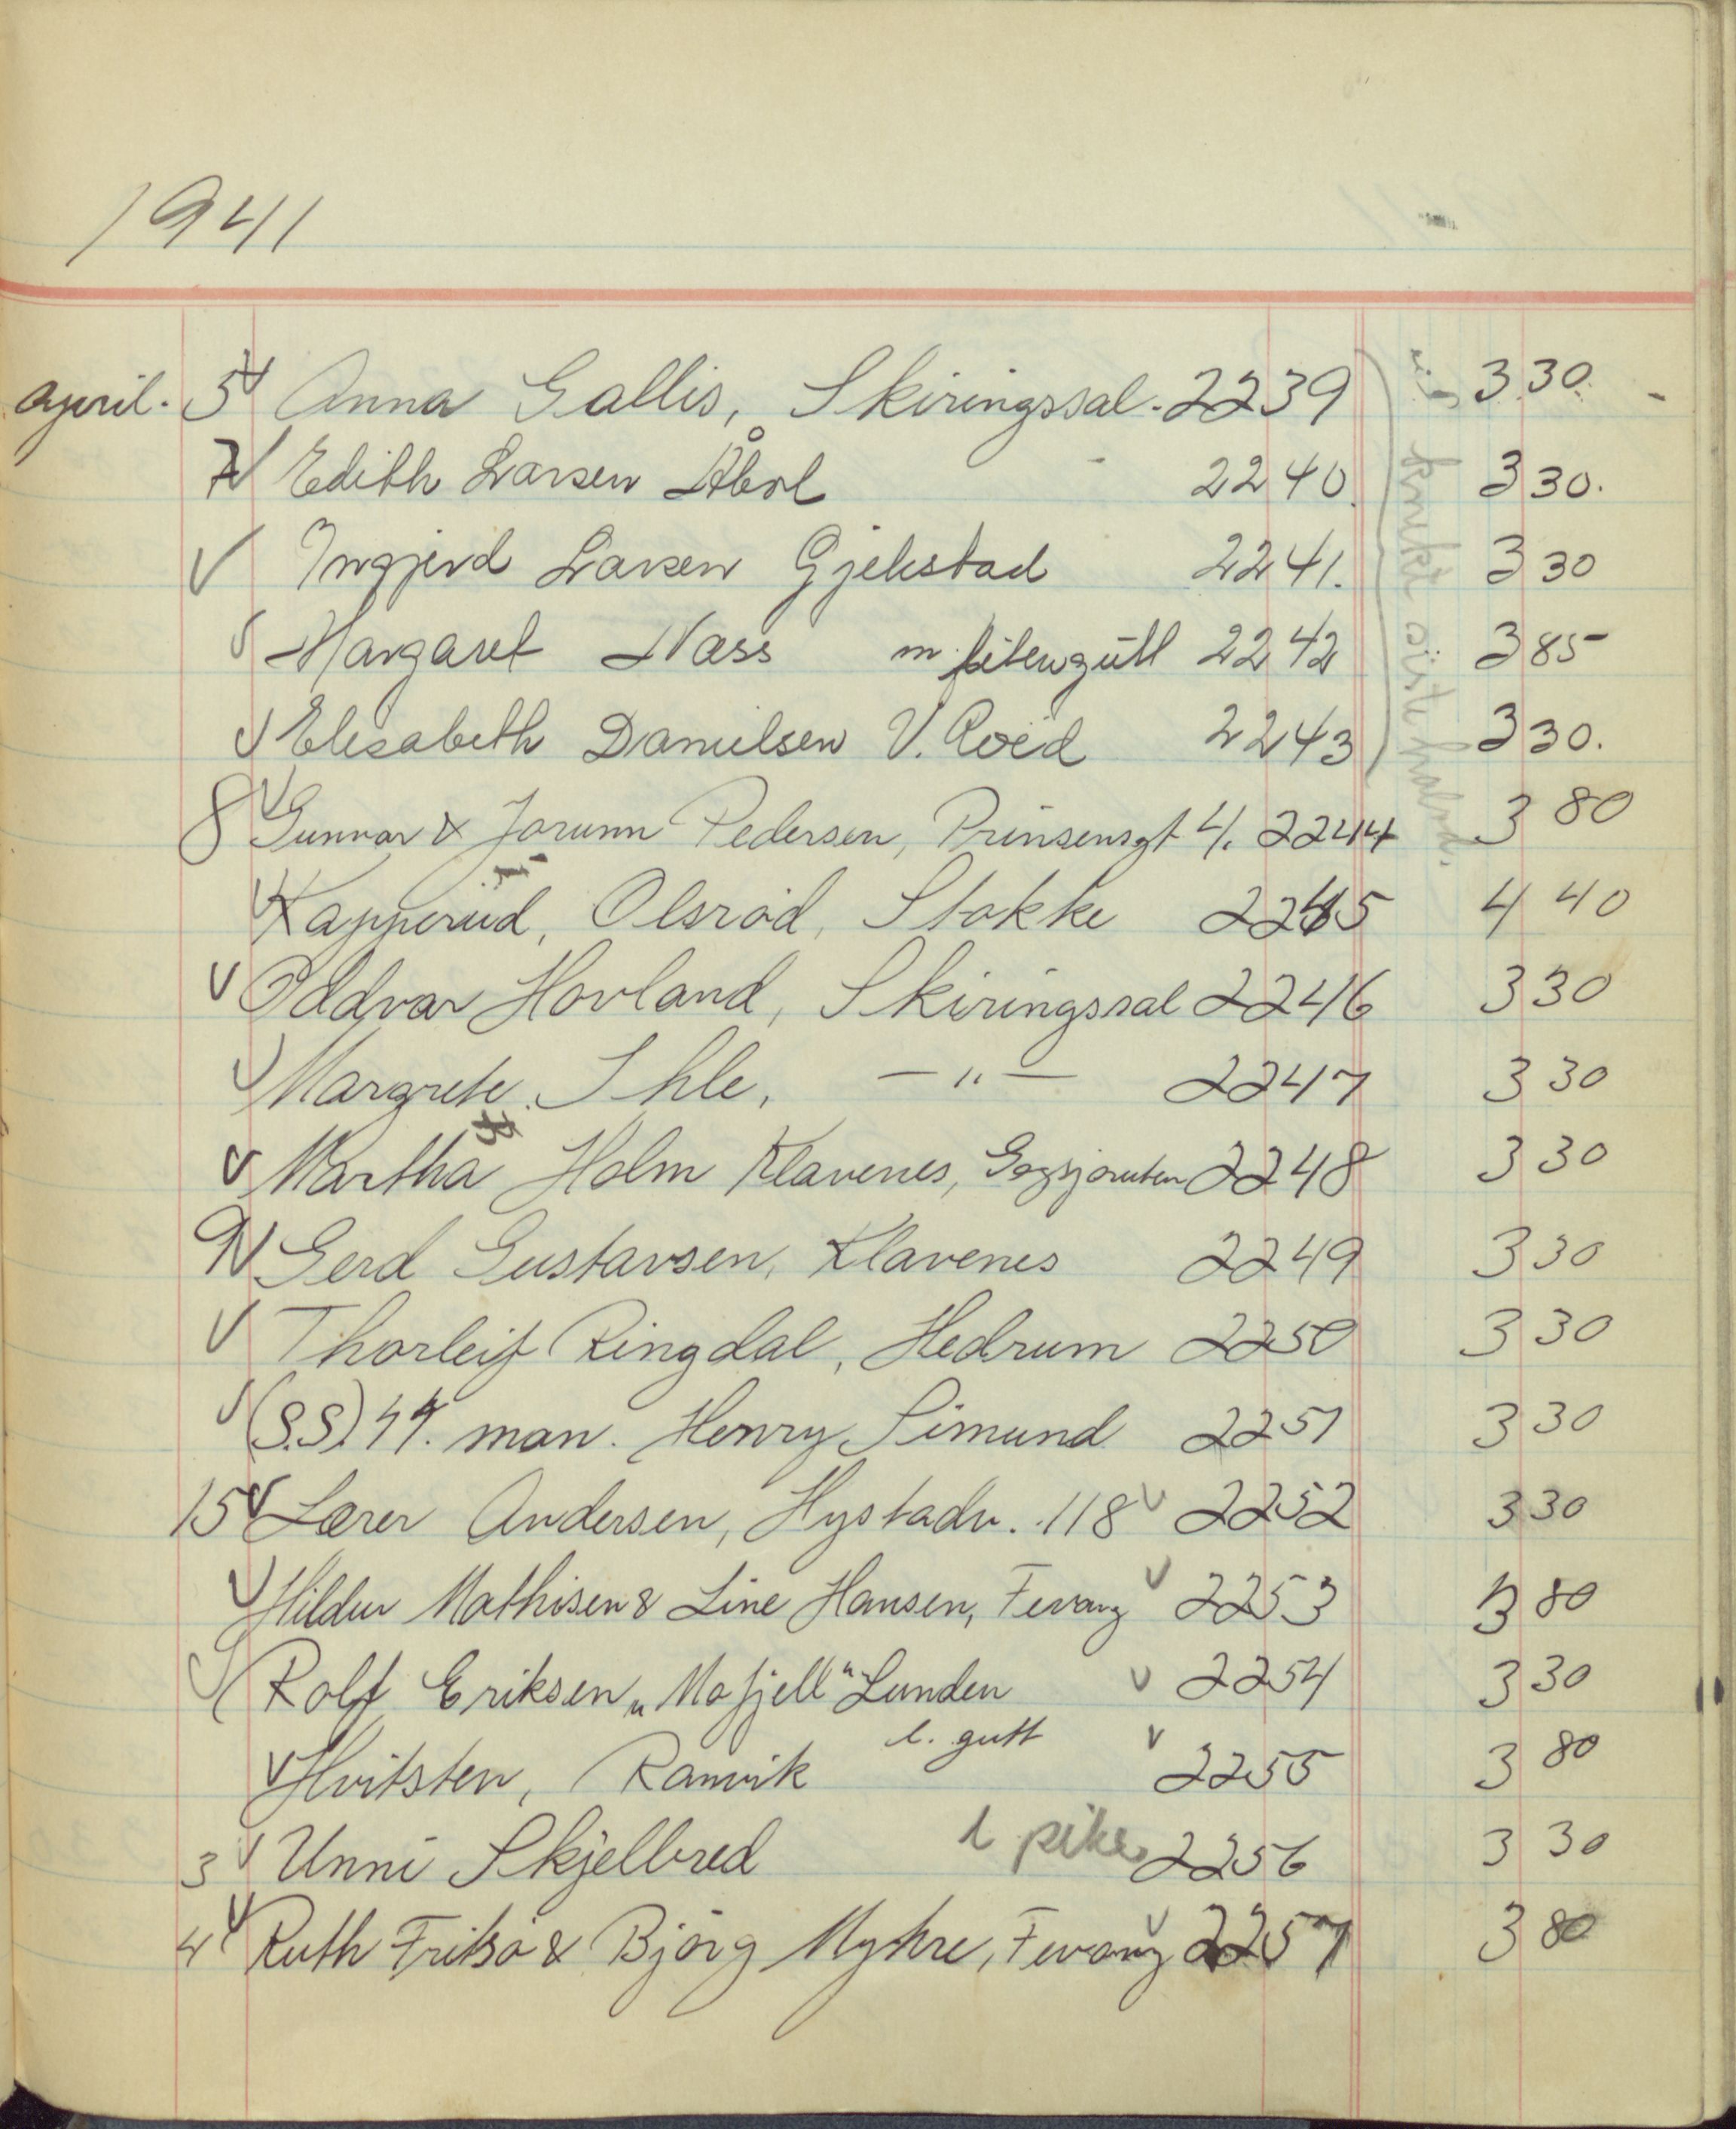 1941
april. 5 V Anna Gallis, Skiringssal. 2239 3 30.
7 V Edith Larsen Åbol 2240. 3 30.
V Ingjerd Larsen Gjekstad 2241. 3 30
V Margaret Næss m. liten gütt 2242 3 85
V Elisabeth Danielsen V. Roëd 2243 3 30.
8 V Gunvor & Jorunn Pedersen, Prinsensgt 4. 2244 3 80
V Kapperud, Olsröd, Stokke 2245 4 40
V Oddvar Hovland, Skiringssal 2246 3 30
V Margrete Ihle, — " — 2247 3 30
V Martha Holm Klavenes, Gogsjøruten 2248 3 30
9 V Gerd Gustavsen, Klavenes 2249 3 30
V Thorleif Ringdal, Hedrum 2250 3 30
V (S.S) 44. man. Henry Simund 2251 3 30
15 V Lærer Andersen, Hystadv. 118 V 2252 3 30
V Hildur Mathisen & Line Hansen, Fevang V 2253 3 80
V Rolf Eriksen „Mofjell" Lunden V 2254 3 30
V Hvitsten, Ranvik l. gutt V 2255 3 80
3 V Unni Skjelbred l pike 2256 3 30
4 V Ruth Fritsö & Björg Myhre, Fevang V 2257 3 80